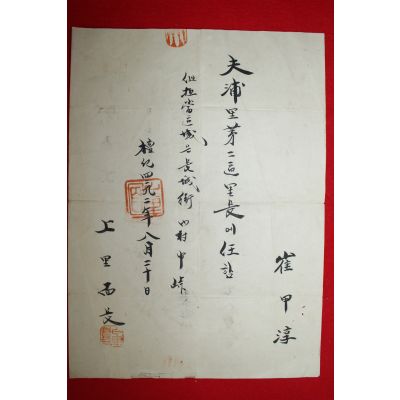 崔甲淳
夫浦里第二區里長에任함
但担當區域은長城街 內村 中峙
檀紀四二九二年八月二十日
上里面長